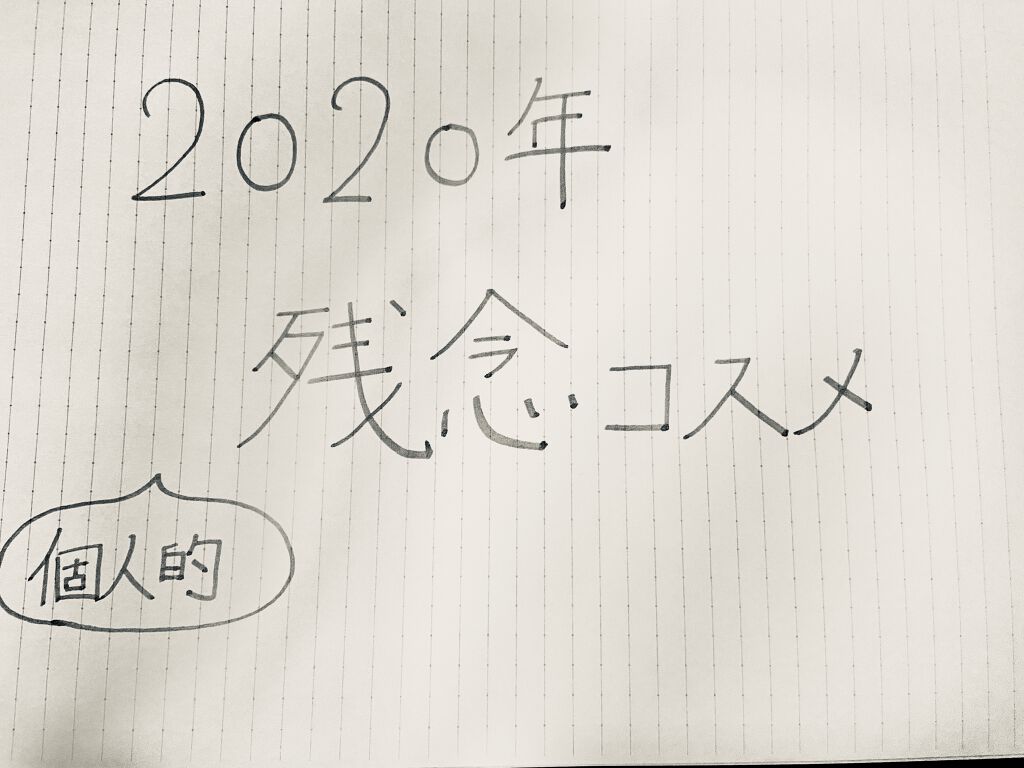 2020年
残念コスメ
個人的